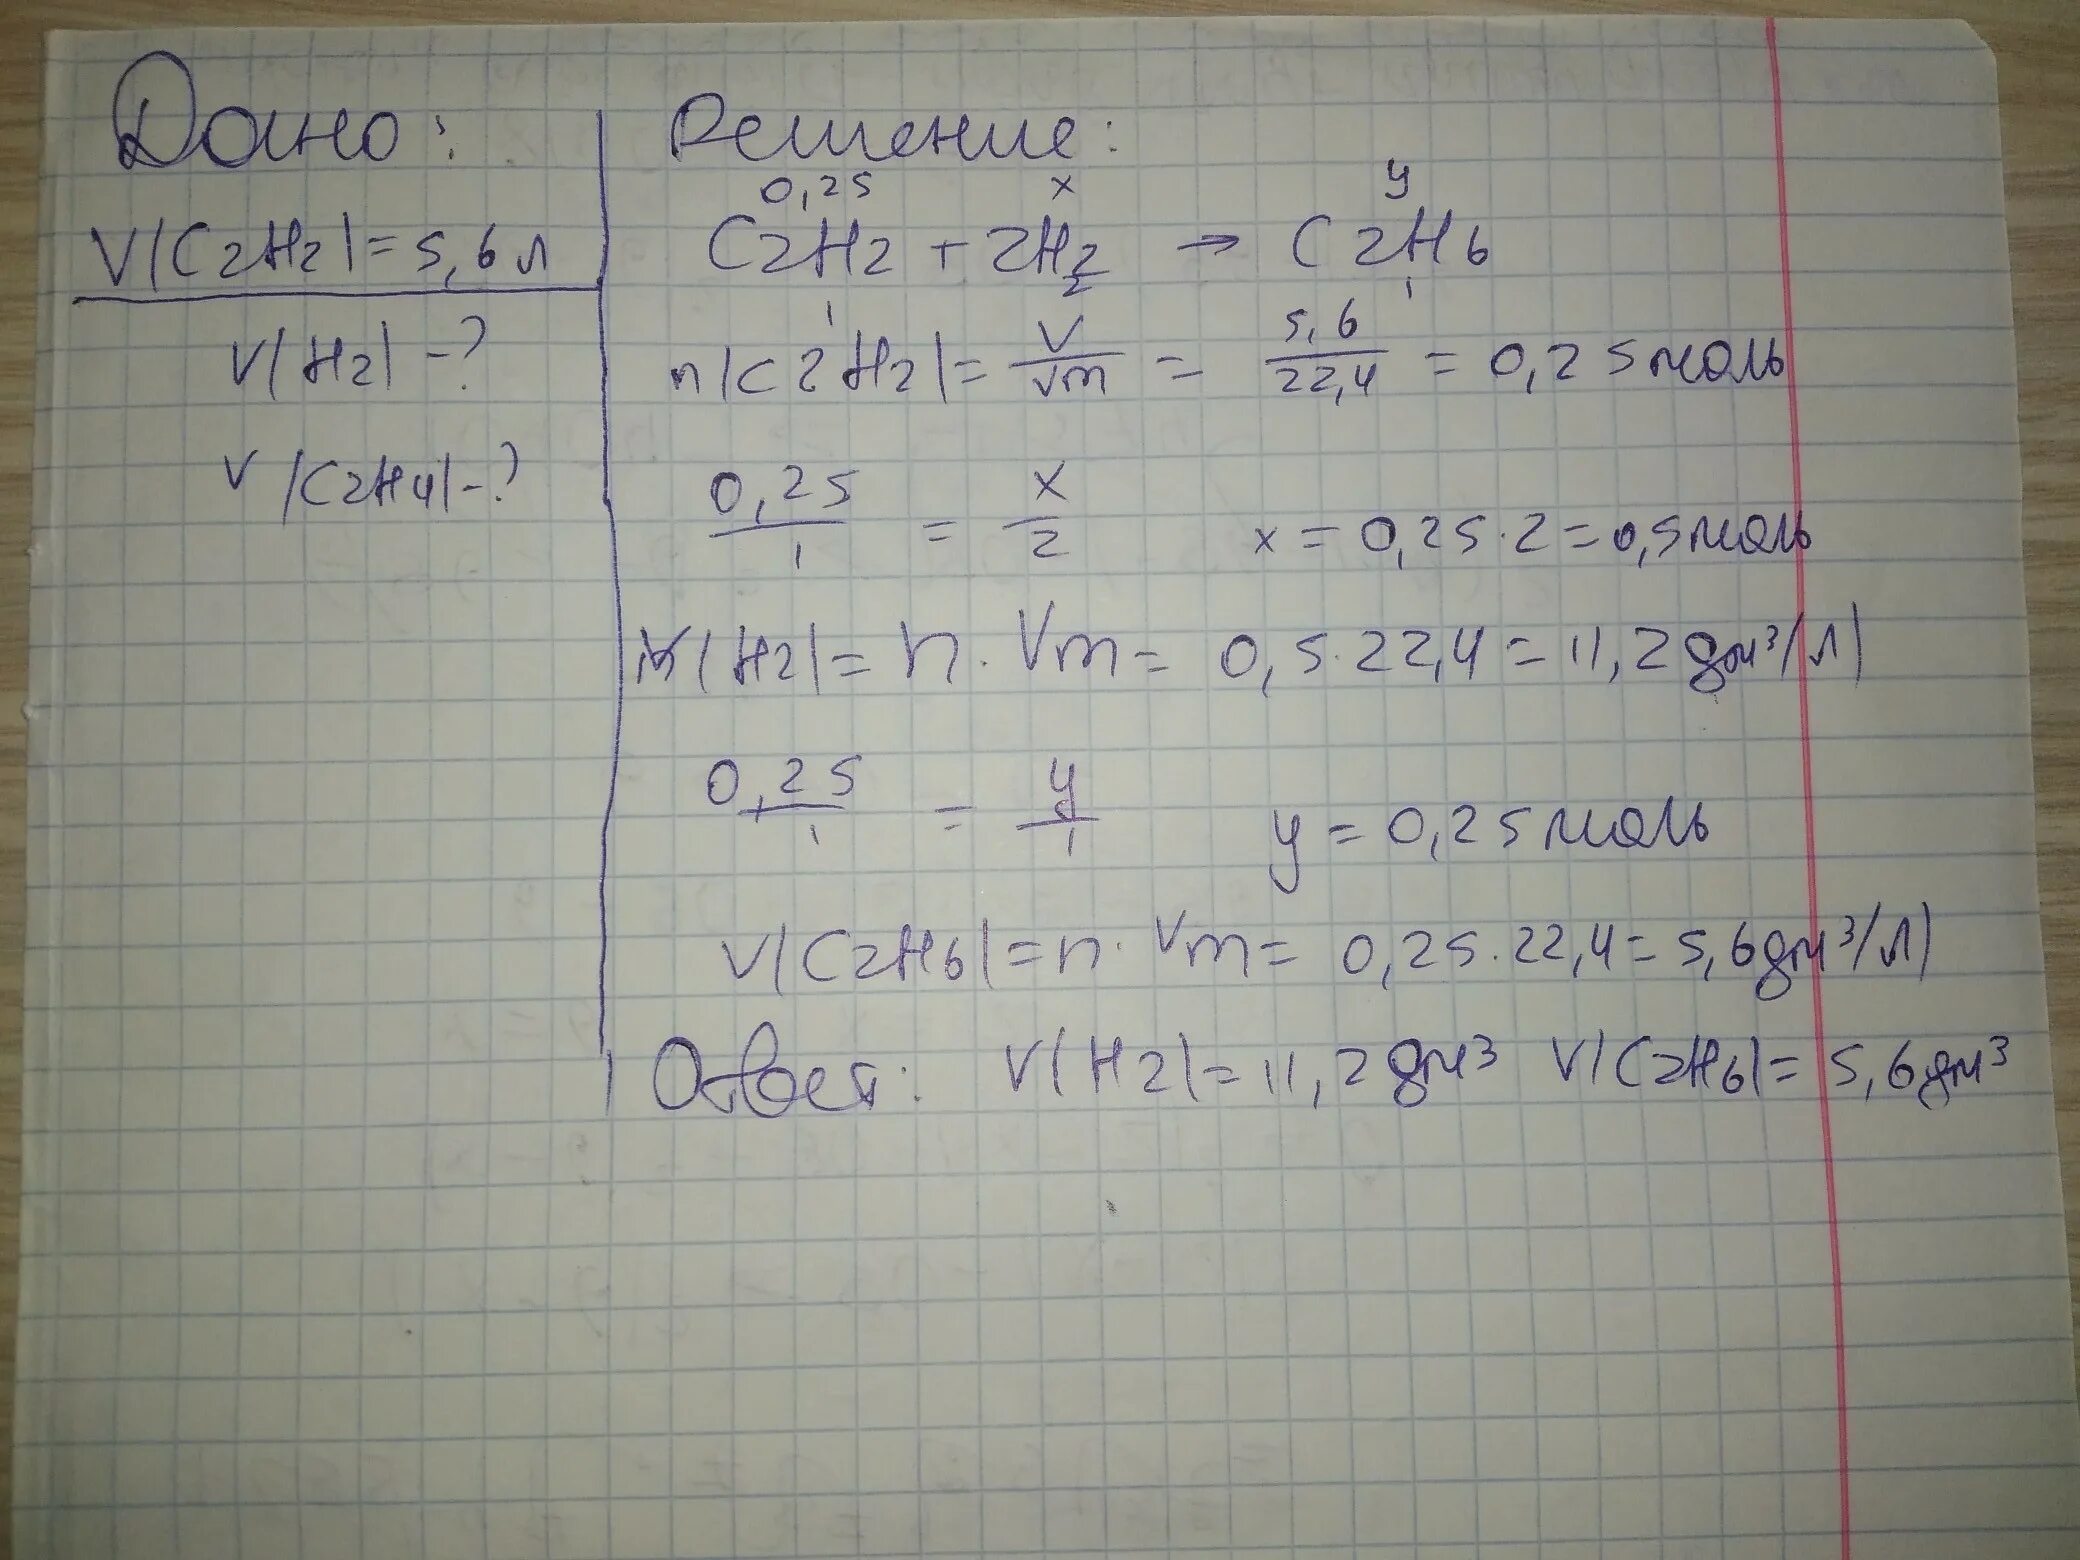 Дано:
V(C2H2)=5,6л
V(H2)-?
V(C2H4)-?
Решение:
0,25 x y
C2H2 + 2H2 → C2H6
1 2 1
n(C2H2)= V/Vm = 5,6/22,4 = 0,25моль
0,25/1 = x/2 x=0,25·2=0,5моль
V(H2)= n·Vm= 0,5·22,4=11,2дм³/л)
0,25/1 = y/1 y=0,25моль
V(C2H6)=n·Vm= 0,25·22,4=5,6дм³/л)
Ответ: V(H2)=11,2дм³ V(C2H6)=5,6дм³